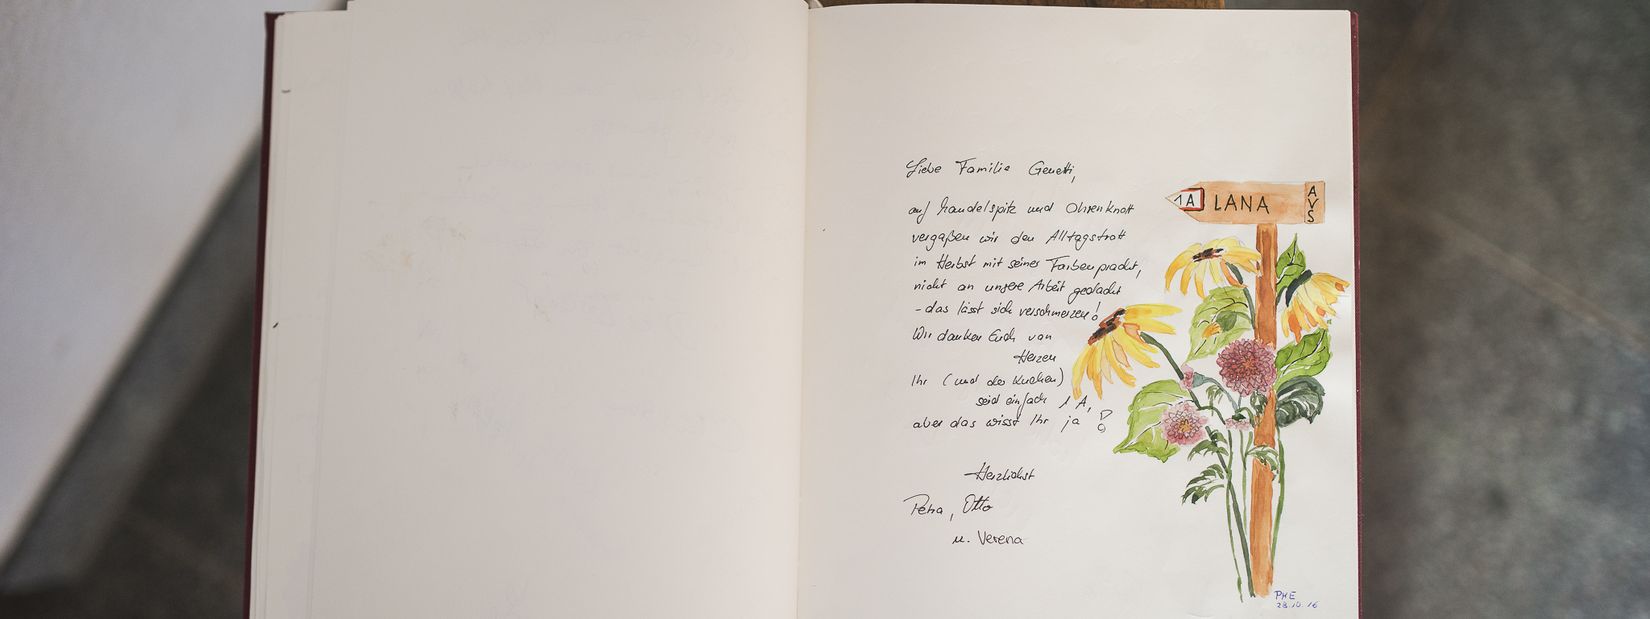 Liebe Familie Genetti,
auf Handelspitz und Ohrenknott
vergaßen wir den Alltagstrott
im Herbst mit seiner Farbenpracht,
nicht an unsere Arbeit gedacht
- das lässt sich verschmerzen!
Wir danken Euch von
Herzen
Ihr (und der Kuchen)
seid einfach 1A,
aber das wisst Ihr ja!
Herzlichst
Petra, Otto
u. Verena
1A LANA
AVS
PHE
28.10.16